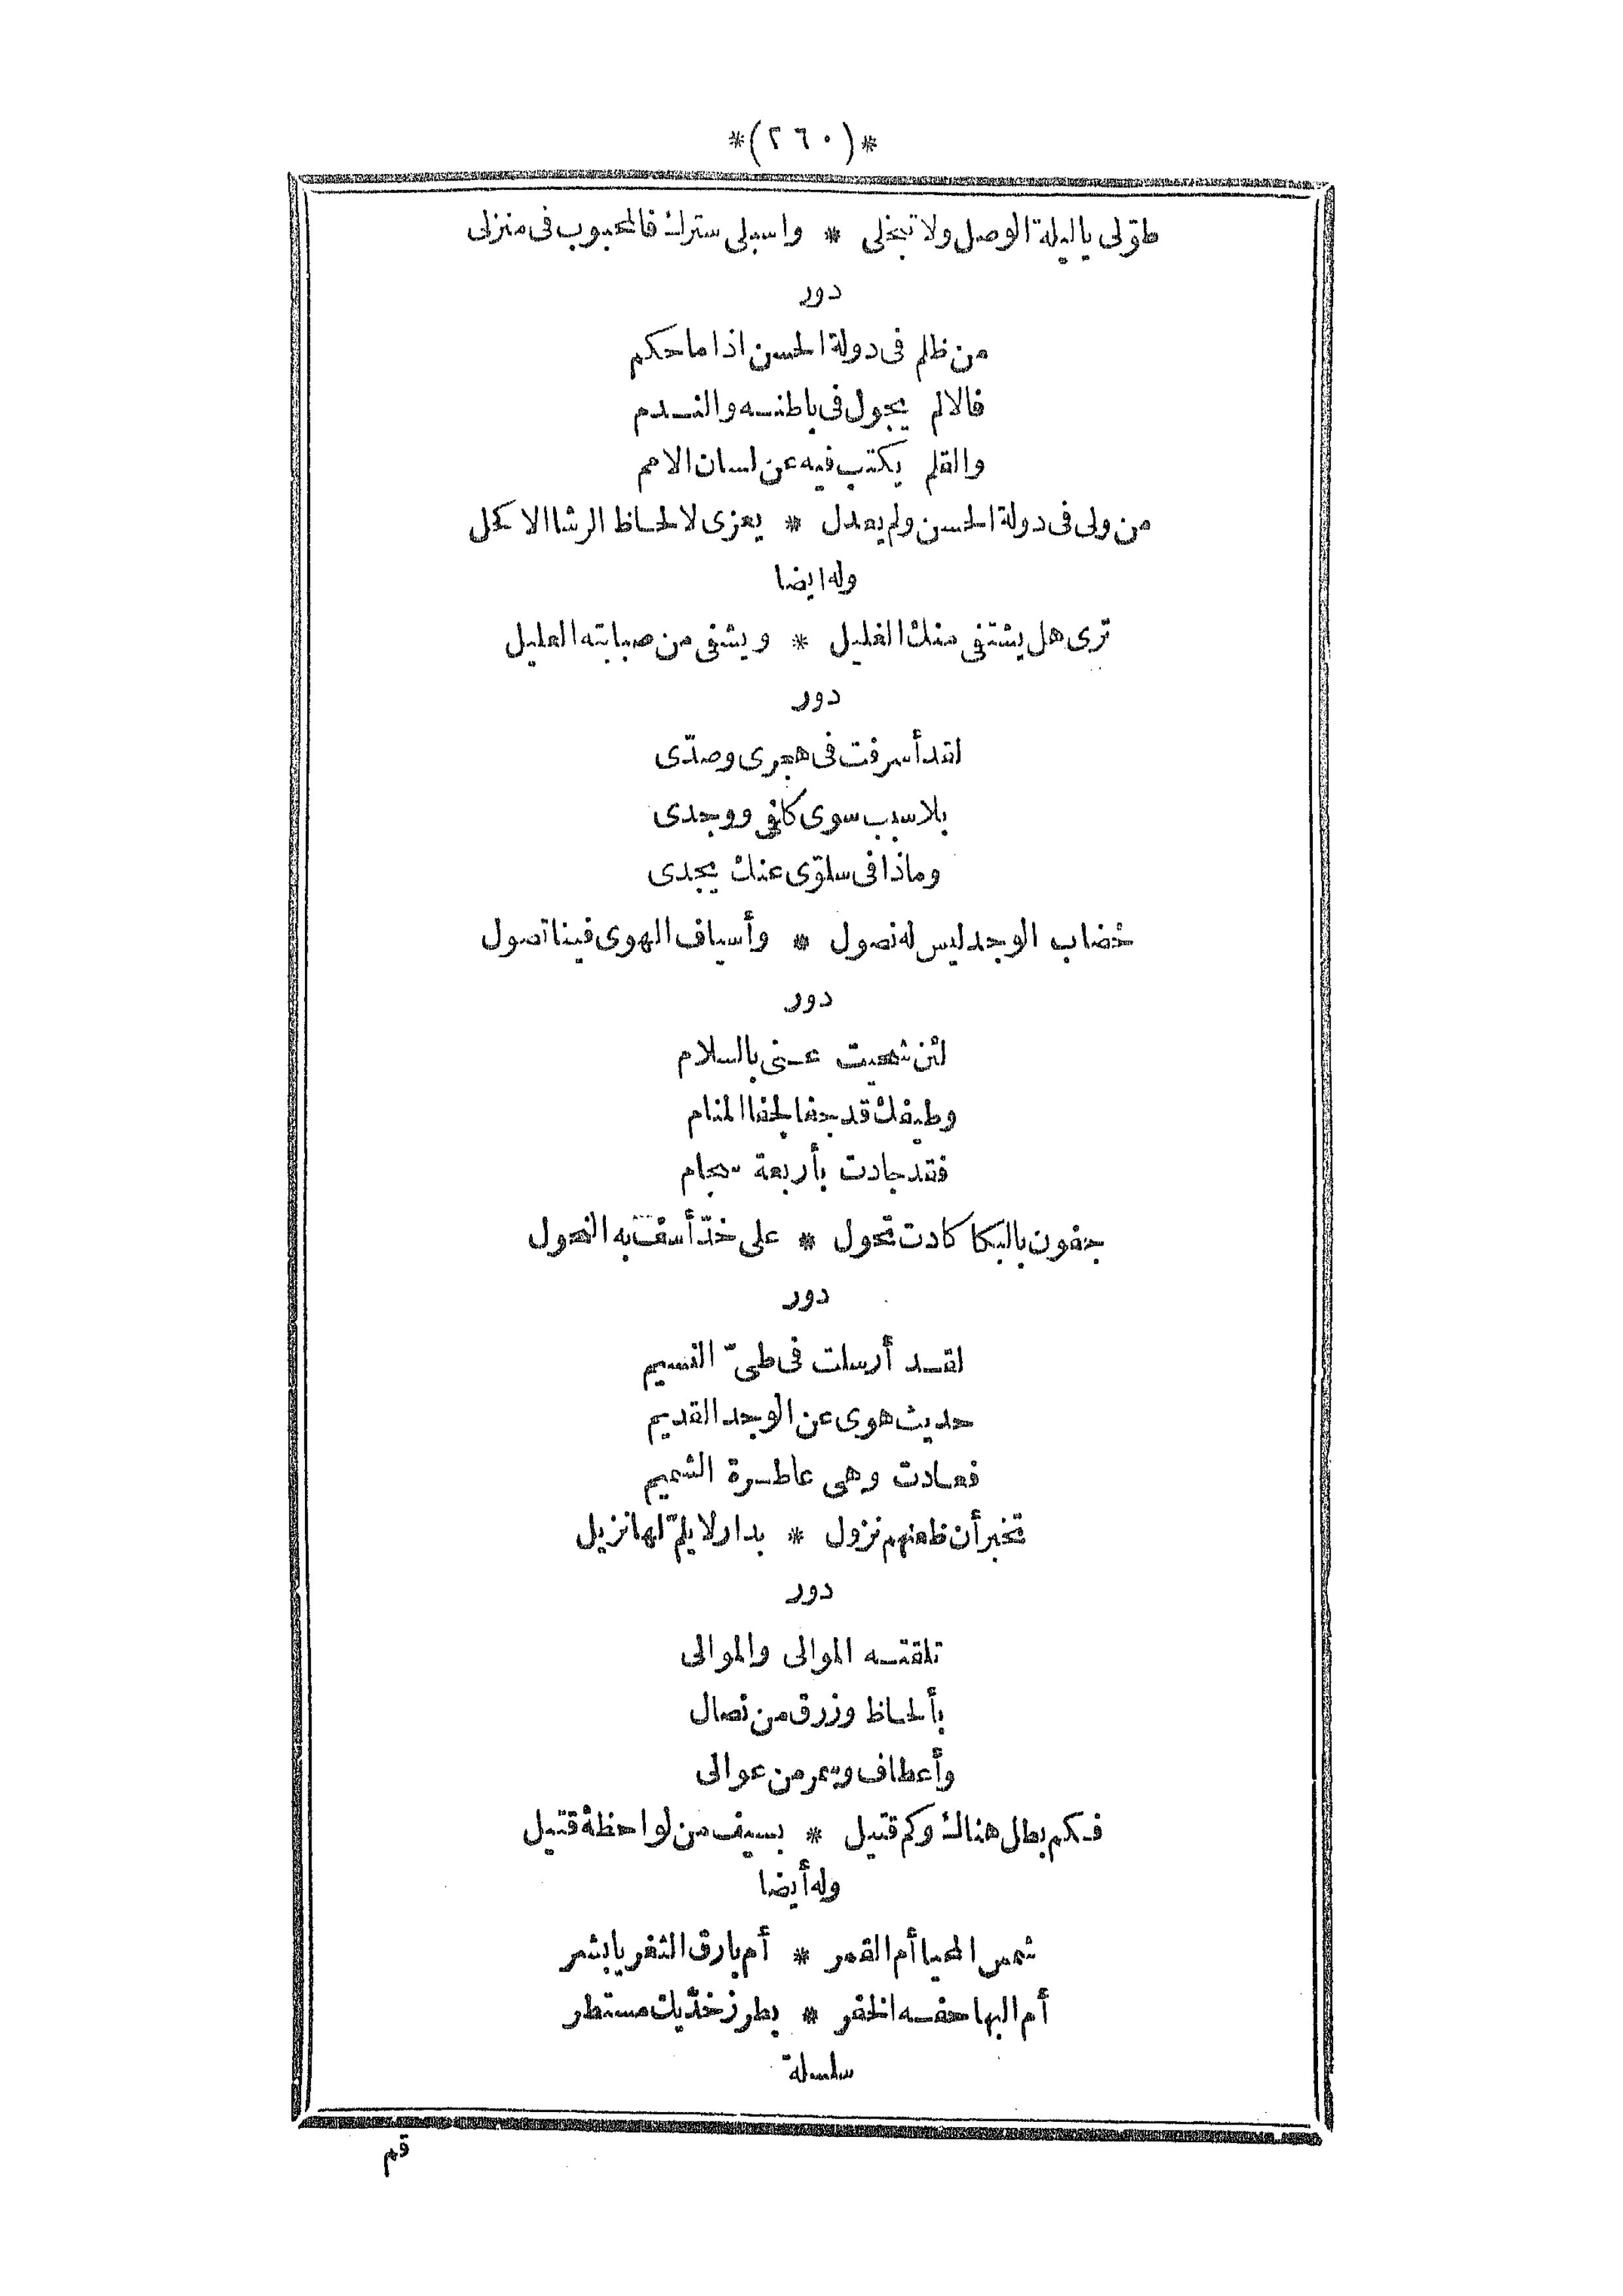 *(٢٦٠)*
طوّلى ياليلة الوصل ولا تبخلى * واسبلى سترك فالمحبوب فى منزلى
دور
من ظلم فى دولة الحسن اذا ما حكم
فالالم يجول فى باطنه والندم
والقلم يكتب فيه عن لسان الامم
من ولى فى دولة الحسن ولم يعدل * يعزى لالحاظ الرشا الاكحل
وله ايضا
ترى هل يشتفى منك الغليل * ويشفى من صبابته العليل
دور
لقد أسرفت فى هجرى وصدّى
بلا سبب سوى كلفى ووجدى
وماذا فى سلوّى عنك يجدى
خضاب الوجد ليس له نصول * وأسياف الهوى فينا تصول
دور
لئن شحيت عنى بالسلام
وطيفك قد جفا لجفا المنام
فقد جادت بأربعة سجام
جفون بالبكا كادت تحول * على خدّ أسف به النحول
دور
لقد أرسلت فى طىّ النسيم
حديث هوى عن الوجد القديم
فعادت وهى عاطرة الشميم
تخبر أن ظعنهم نزول * بدار لا يلمّ لها نزيل
دور
تلقته الموالى والموالى
بألحاظ وزرق من نصال
وأعطاف وسمر من عوالى
فكم بطل هناك وكم قتيل * بسيف من لواحظه قتيل
وله أيضا
شمس المحيا أم القمر * أم بارق الثغر يا بشر
أم البها حفه الخفر * بطرز خدّيك مستطر
سلسلة
قم